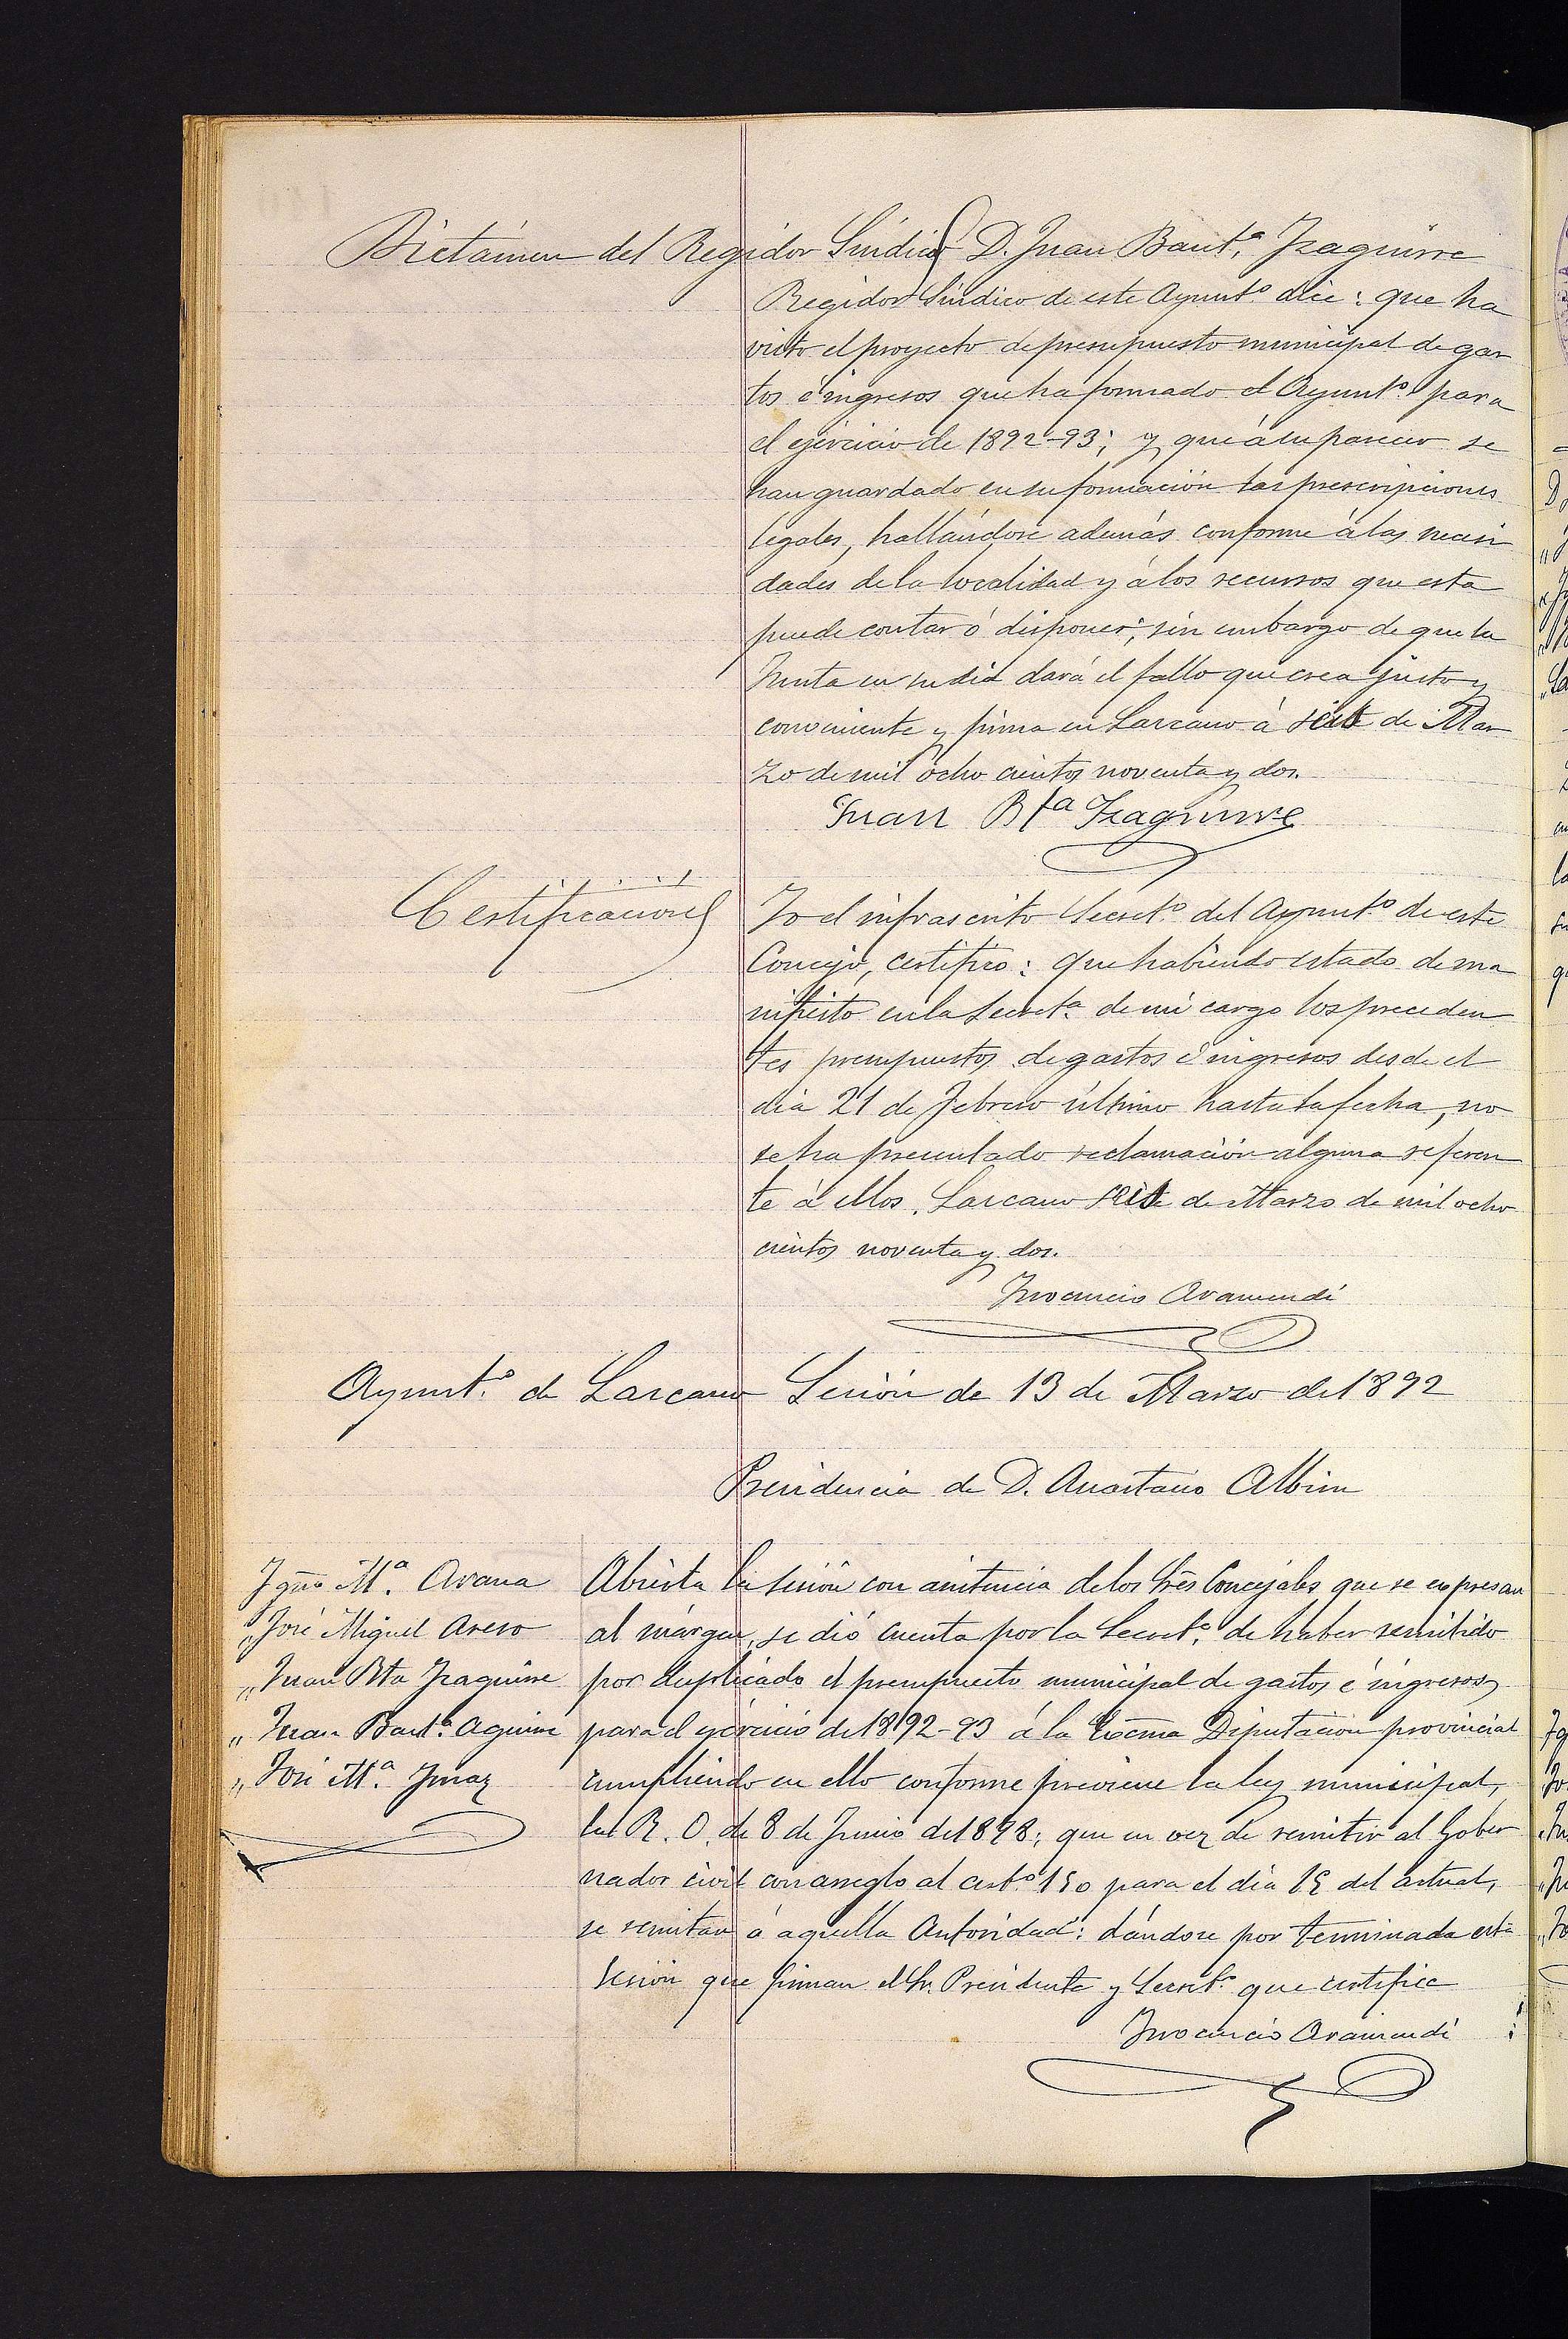 Dictámen del Regidor Síndico D. Juan Bautª Izaguirre
Regidor Síndico de este Ayuntº dice: que ha
visto el proyecto de presupuesto municipal de gas
tos é ingresos que ha formado el Ayuntº para
el ejercicio de 1892-93; y que á su parecer se
han guardado en su formación las prescripciones
legales, hallándose además conforme á las necesi
dades de la localidad y á los recursos que esta
puede contar ó disponer; sin embargo de que la
Junta en su dia dará el fallo que crea justo y
conveniente y firma en Lazcano á siete de Mar
zo de mil ocho cientos noventa y dos.
Juan Bta Izaguirre
Certificacion
Yo el infrascrito Secretº del Ayuntº de este
Concejo, certifico: que habiendo estado de ma
nifiesto en la Secretª de mi cargo los preceden
tes presupuestos de gastos é ingresos desde el
dia 21 de Febrero último hasta la fecha, no
se ha presentado reclamación alguna referen
te á ellos. Lazcano siete de Marzo de mil ocho
cientos noventa y dos.
Inocencio Aramendi
Ayuntº de Lazcano Sesión de 13 de Marzo de 1892
Presidencia de D. Anastasio Albisu
Igno Mª Arana
" José Miguel Aseso
" Juan Bta Izaguirre
" Juan Bautª Aguirre
" José Mª Imaz
Abierta la sesión con asistencia de los Srēs Concejales que se expresan
al márgen, se dió cuenta por la Secretª de haber remitido
por duplicado el presupuesto municipal de gastos é ingresos
para el ejercicio de 1892-93 á la Excma Diputación provincial
cumpliendo en ello conforme previene la ley municipal,
la R. O. de 8 de Junio de 1878; que en vez de remitir al Gober
nador civil con arreglo al artº 150 para el dia 15 del actual,
se remitan á aquella Autoridad: dándose por terminada esta
sesión que firman el Sr. Presidente y Secretº que certifica
Inocencio Aramendi